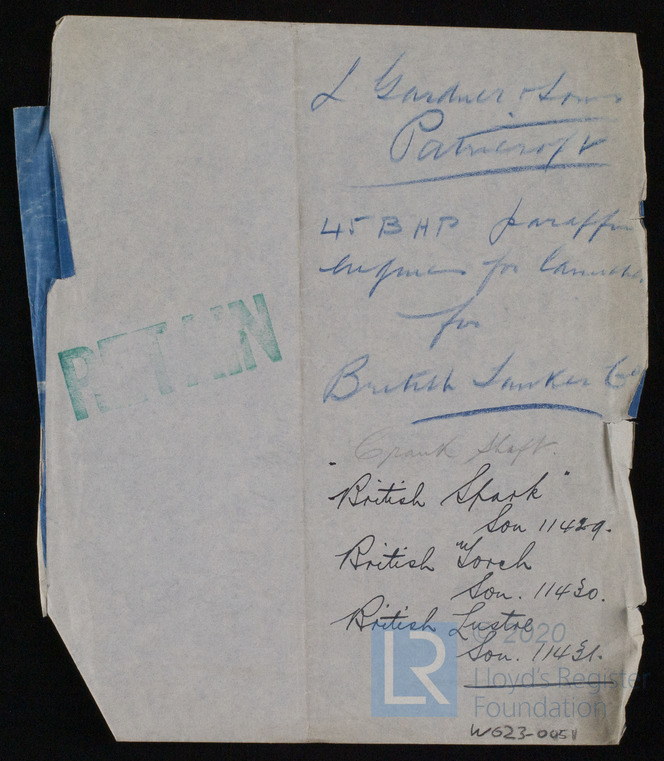 L Gardner & Sons
Patricroft
45 BHP paraffin
engines for launches
for
British Tanker Co
RETAIN
Crank Shaft.
"British Spark"
Lon 11429.
British "Torch
Lon. 11430.
British Lustre
Lon. 11431.
© 2020
LR
Lloyd's Register
Foundation
W623-0051